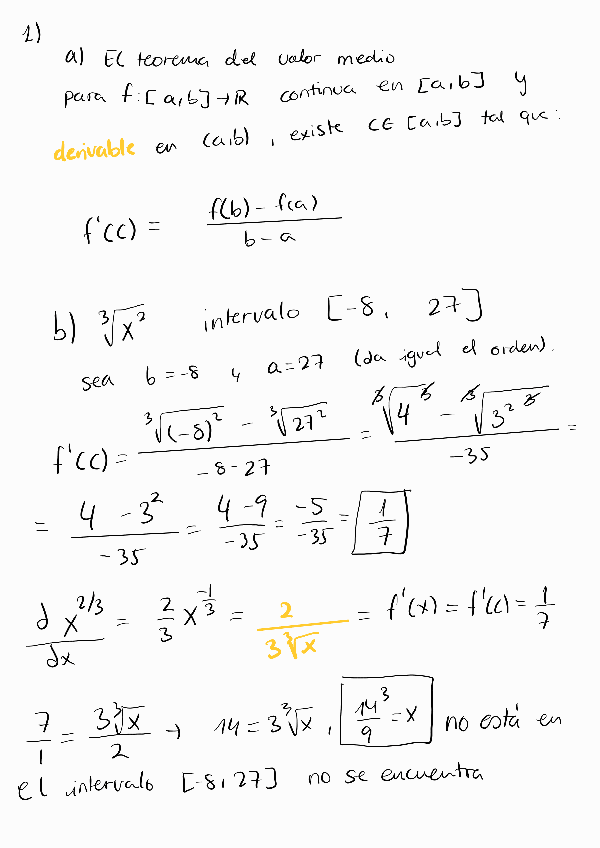 1)
a) El teorema del valor medio
para f: [a,b] → ℝ continua en [a,b] y
derivable en (a,b), existe c ∈ [a,b] tal que:
f'(c) = (f(b) - f(a)) / (b - a)
b) ∛x² intervalo [-8, 27]
sea b = -8 y a = 27 (da igual el orden).
f'(c) = (∛(-8)² - ∛27²) / (-8 - 27) = (∛4³ - ∛3²³) / -35 =
= (4 - 3²) / -35 = (4 - 9) / -35 = -5 / -35 = 1/7
d x^(2/3) / dx = 2/3 x^(-1/3) = 2 / (3∛x) = f'(x) = f'(c) = 1/7
7/1 = 3∛x / 2 → 14 = 3∛x, 14³/9 = x no está en
el intervalo [-8, 27] no se encuentra